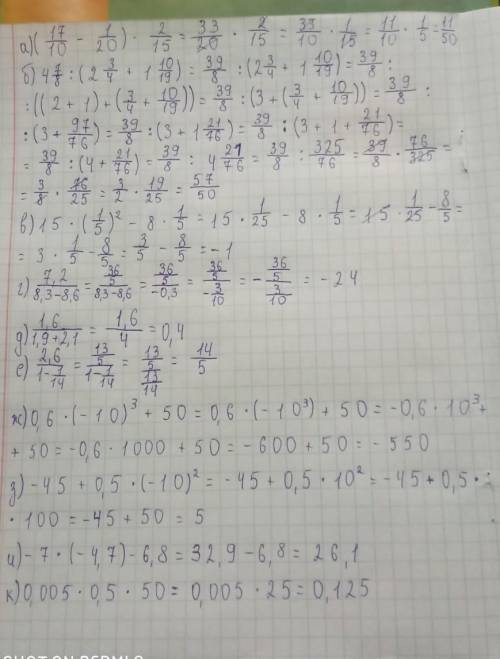 а) (17/10 - 1/20) · 2/15 = 33/20 · 2/15 = 33/10 · 1/15 = 11/10 · 1/5 = 11/50
б) 4 7/8 : (2 3/4 + 1 10/19) = 39/8 : (2 3/4 + 1 10/19) = 39/8 :
: ((2 + 1) + (3/4 + 10/19)) = 39/8 : (3 + (3/4 + 10/19)) = 39/8 :
: (3 + 97/76) = 39/8 : (3 + 1 21/76) = 39/8 : (3 + 1 + 21/76) =
= 39/8 : (4 + 21/76) = 39/8 : 4 21/76 = 39/8 : 325/76 = 39/8 · 76/325 =
= 3/8 · 76/25 = 3/2 · 19/25 = 57/50
в) 15 · (1/5)² - 8 · 1/5 = 15 · 1/25 - 8 · 1/5 = 15 · 1/25 - 8/5 =
= 3 · 1/5 - 8/5 = 3/5 - 8/5 = - 1
г) 7,2/(8,3-8,6) = (36/5)/(8,3-8,6) = (36/5)/(-0,3) = (36/5)/(-3/10) = - (36/5)/(3/10) = - 24
д) 1,6/(1,9+2,1) = 1,6/4 = 0,4
е) 2,6/(1-1/14) = (13/5)/(1-1/14) = (13/5)/(13/14) = 14/5
ж) 0,6 · (-10)³ + 50 = 0,6 · (-10³) + 50 = -0,6 · 10³ +
+ 50 = -0,6 · 1000 + 50 = -600 + 50 = - 550
з) -45 + 0,5 · (-10)² = -45 + 0,5 · 10² = -45 + 0,5 ·
· 100 = -45 + 50 = 5
и) -7 · (-4,7) - 6,8 = 32,9 - 6,8 = 26,1
к) 0,005 · 0,5 · 50 = 0,005 · 25 = 0,125